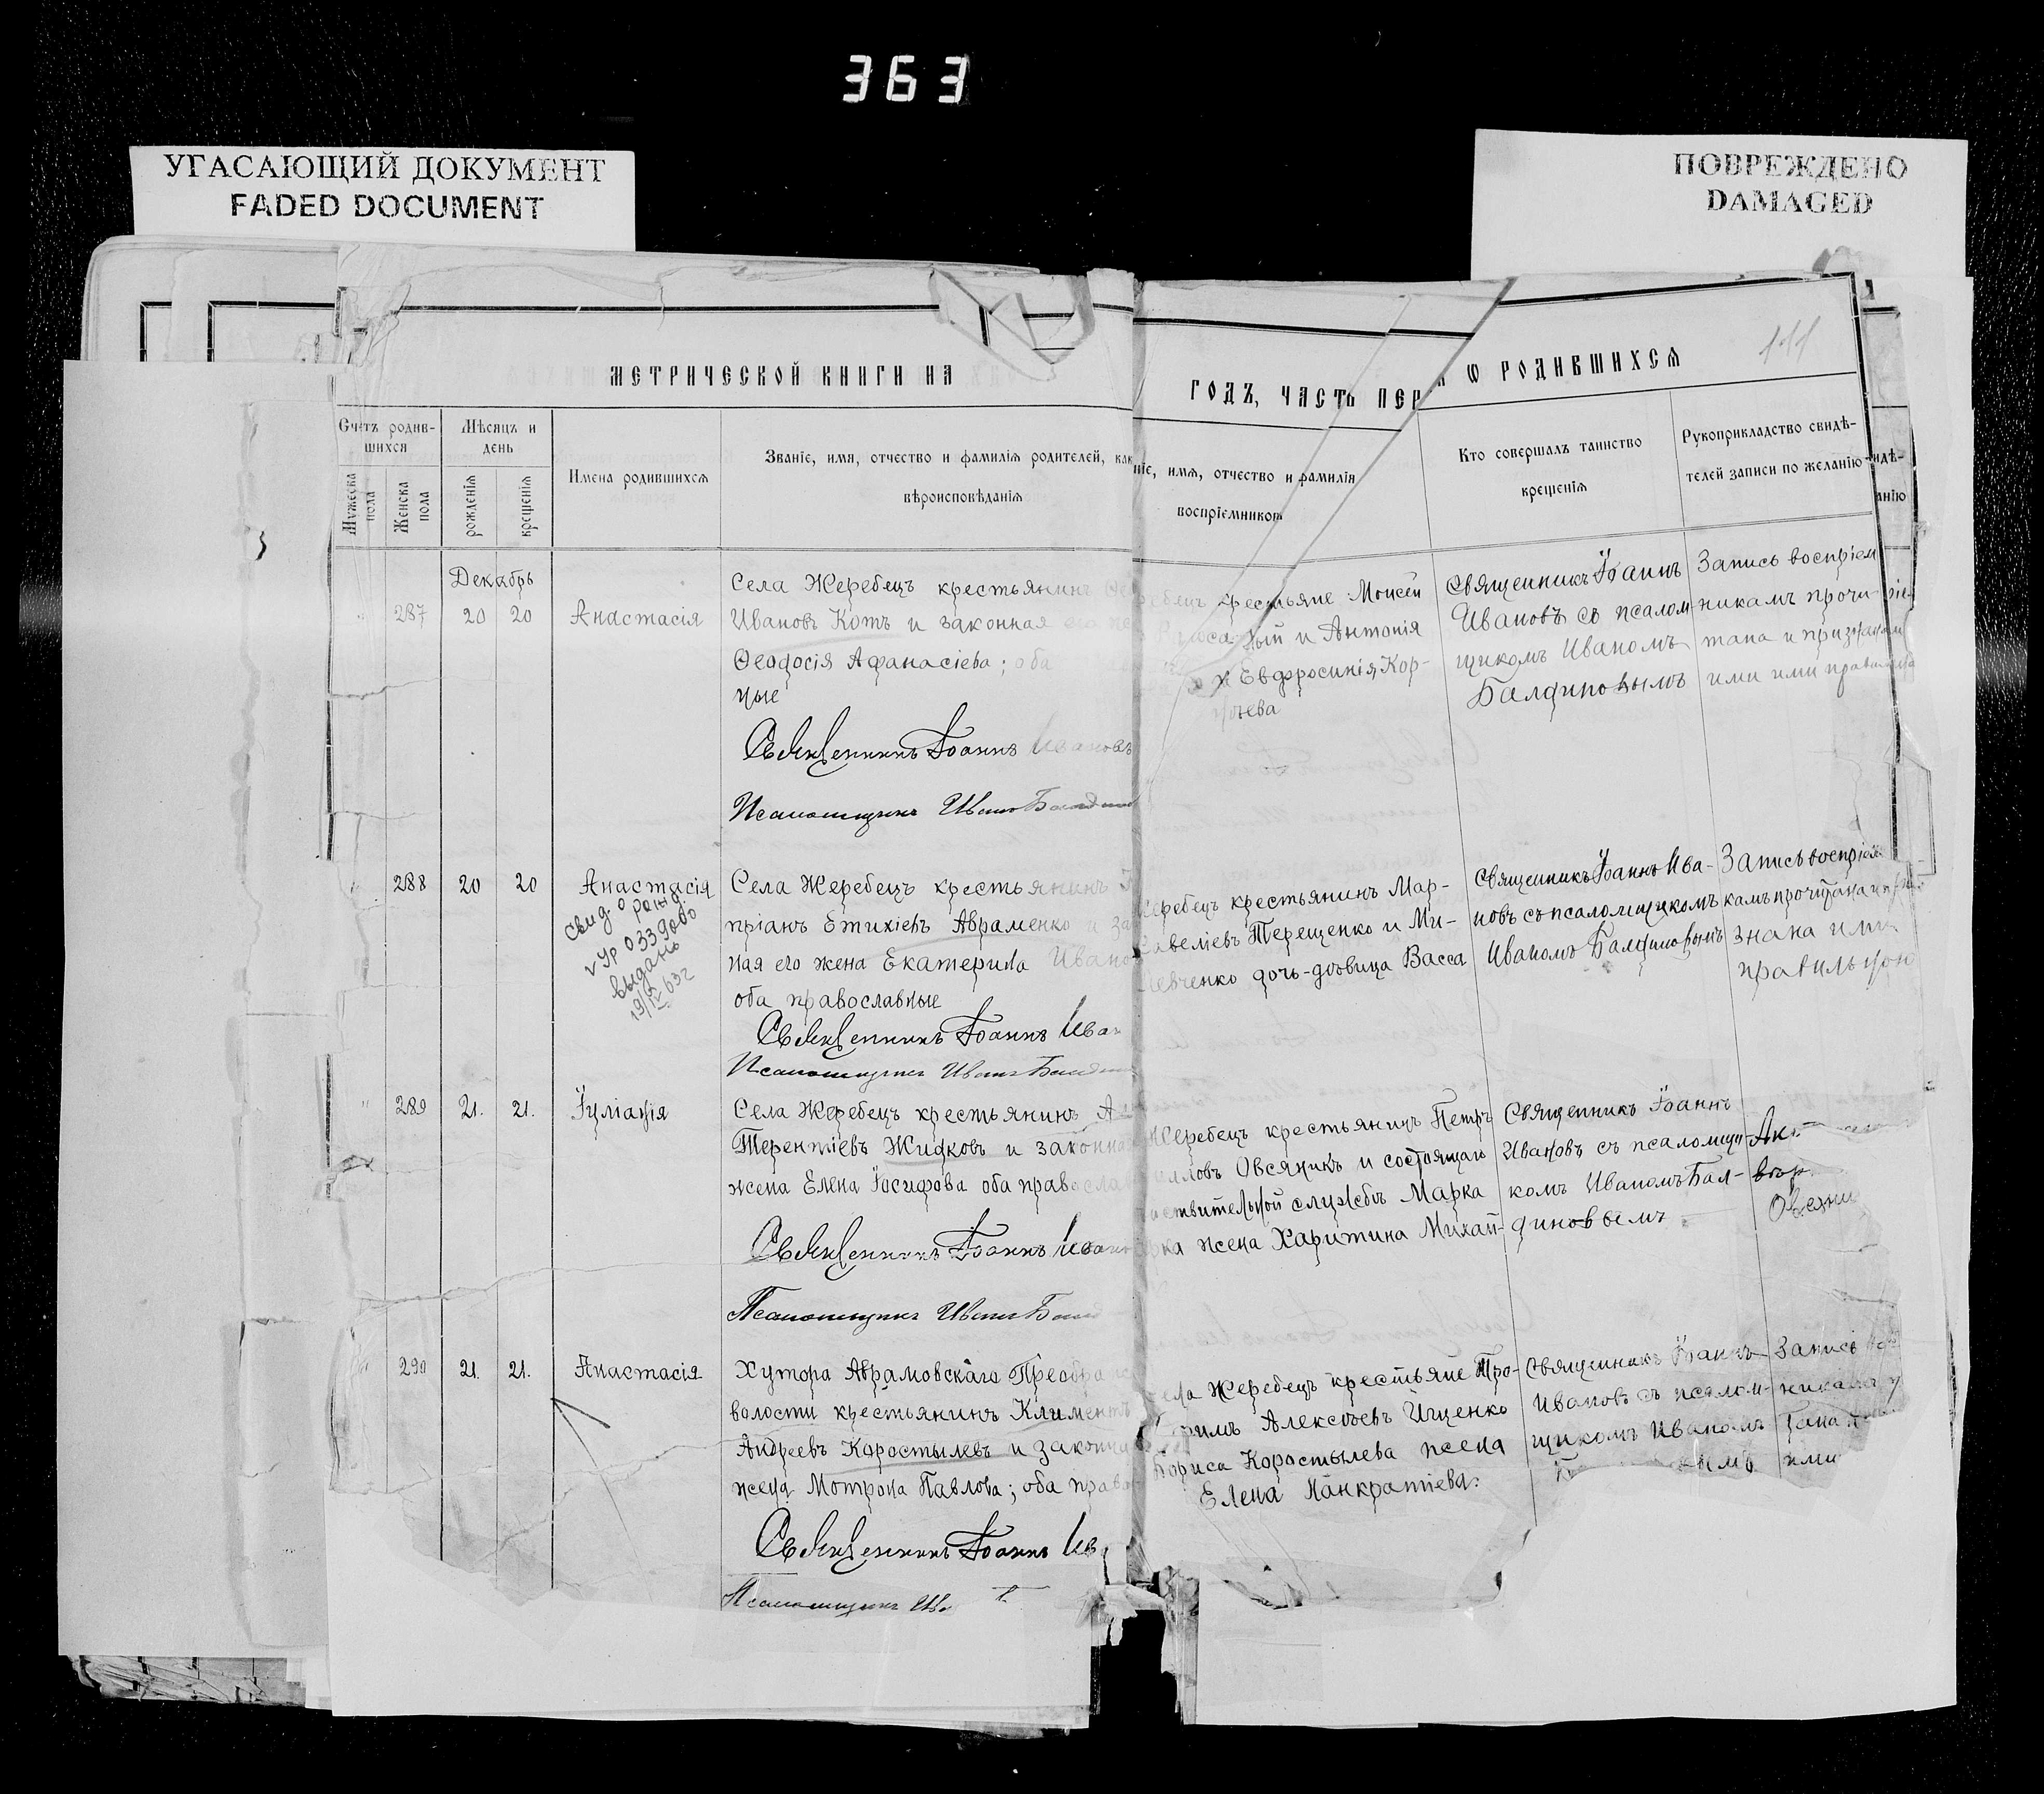 363
УГАСАЮЩИЙ ДОКУМЕНТ
FADED DOCUMENT
ПОВРЕЖДЕНО
DAMAGED
МЕТРИЧЕСКОЙ КНИГИ НА
ГОДЪ, ЧАСТЬ ПЕР
Ѡ РОДИВШИХСѦ
Счетъ родив-
шихся
Мужеска
пола
Женска
пола
Мѣсяцъ и
день
рожденія
крещенія
Имена родившихсѧ
Званіе, имя, отчество и фамилія родителей, как
вѣроисповѣданія
ніе, имя, отчество и фамилія
воспріемников
Кто совершалъ таинство
крещенія
Рукоприкладство свидѣ-
телей записи по желанію
идѣ-
анію
Декабрь
287
20
20
Анастасія
Села Жеребецъ крестьянинъ
Ивановъ Котъ и законная его
Ѳеодосія Афанасіева; оба
ные
Священникъ Іоаннъ Ивановъ
Псаломщикъ Иванъ
крестьяне Моисей
и Антонія
Евфросинія Кор-
нѣева
Священникъ Іоаннъ
Ивановъ съ псалом-
щикомъ Иваномъ
Балдиновымъ
Запись воспріем
никамъ прочи-
тана и признана
ими
288
20
20
Анастасія
свид о рожд.
v УР 0339060
выдано
19/IV 63 г
Села Жеребецъ крестьянинъ
пріанъ Евтихіевъ Авраменко и за
ная его жена Екатерина Ивано
оба православные
Священникъ Іоаннъ Иван
Псаломщикъ Иванъ
еребецъ крестьянинъ Мар-
авеліевъ Терещенко и Ми-
евченко дочь-дѣвица Васса
Священникъ Іоаннъ Ива-
новъ съ псаломщикомъ
Иваномъ Балдиновымъ
Запись воспріем
камъ прочитана и при
знана ими
правильною
289
21.
21.
Іуліанія
Села Жеребецъ крестьянинъ
Терентіевъ Жидковъ и законна
жена Елена Іосифова оба правосла
Священникъ Іоаннъ Ивано
Псаломщикъ Иванъ
Жеребецъ крестьянинъ Петръ
ловъ Овсяникъ и состоящаго
ствительной службѣ Марка
жена Харитина Михай-
Священникъ Іоаннъ
Ивановъ съ псаломщи-
комъ Иваномъ Бал-
диновымъ
290
21.
21.
Анастасія
Хутора Аврамовскаго Преобра
волости крестьянинъ Климентъ
Андреевъ Коростылевъ и законна
жена Мотрона Павлова; оба право
Священникъ Іоаннъ Ив
Псаломщикъ Ив
Жеребецъ крестьяне Тро-
фимъ Алексѣевъ Ищенко
Бориса Коростылева жена
Елена Панкратіева.
Священникъ Іоаннъ
Ивановъ съ псалом-
щикомъ Иваномъ
Запись
никамъ
тана
ими